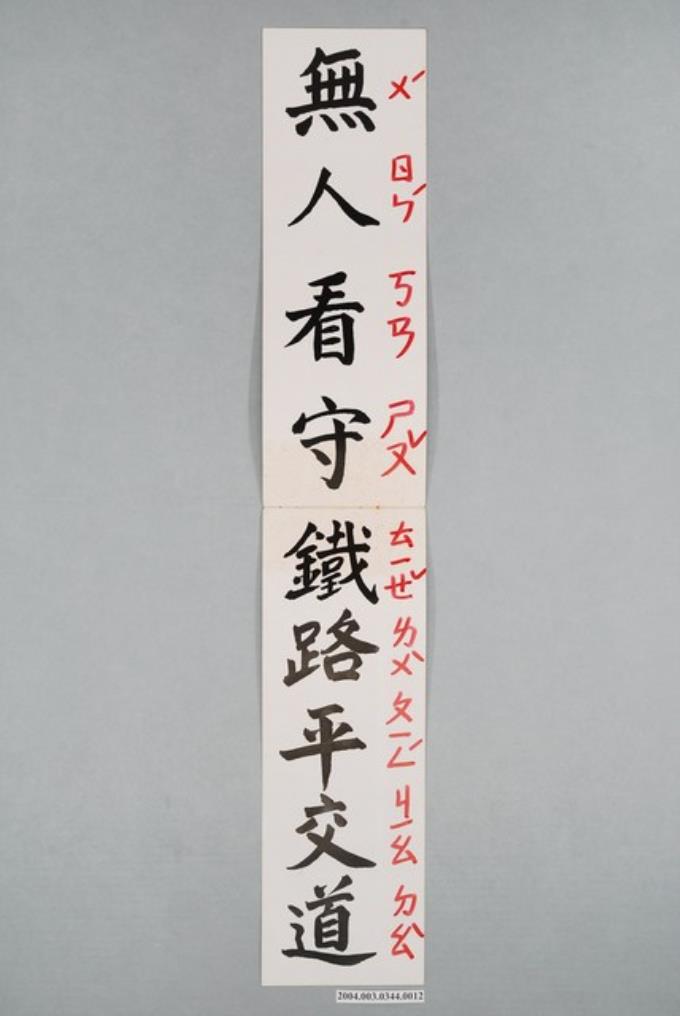 無人看守鐵路平交道
ㄨˊ ㄖㄣˊ ㄎㄢ ㄕㄡˇ ㄊㄧㄝˇ ㄌㄨˋ ㄆㄧㄥˊ ㄐㄧㄠ ㄉㄠˋ
2004.003.0344.0012